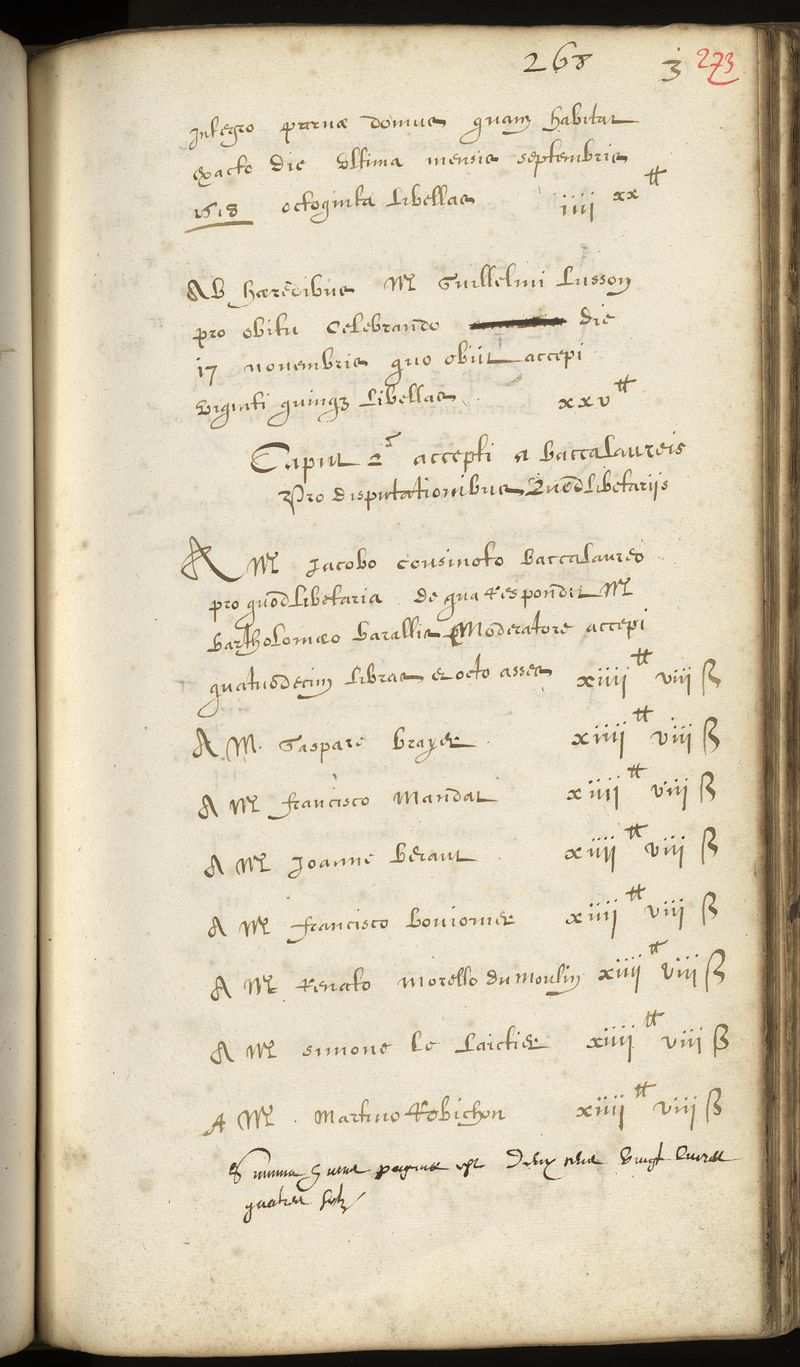 268 3 273
integro parvæ domus quam habitat
exacto die ultima mensis septembris
1618 octoginta libellas iiii xx ₶
Ab hæredibus Mri Guillelmi Lusson
pro obitu celebrando die
17 novembris quo obiit accepi
viginti quinq; libellas xxv ₶
Caput 2 accepti a baccalaureis
Pro disputationibus Quodlibetariis
A Mro Jacobo cousinoto baccalaureo
pro quodlibetaria de qua respondit Mro
Bartholomæo Barallis Moderatore accepi
quatuordecim libras et octo asses xiiii ₶ viii ß
A M. Gaspare Brayer xiiii ₶ viii ß
A Mro francisco Mandat xiiii ₶ viii ß
A Mro Joanne Beraut xiiii ₶ viii ß
A Mro francisco Bouionier xiiii ₶ viii ß
A Mro Renato Morello du Moulin xiiii ₶ viii ß
A Mro simone le Laictier xiiii ₶ viii ß
A Mro Martino Robichon xiiii ₶ viii ß
Summa huius paginæ est Deux cens vingt livres
quatre solz